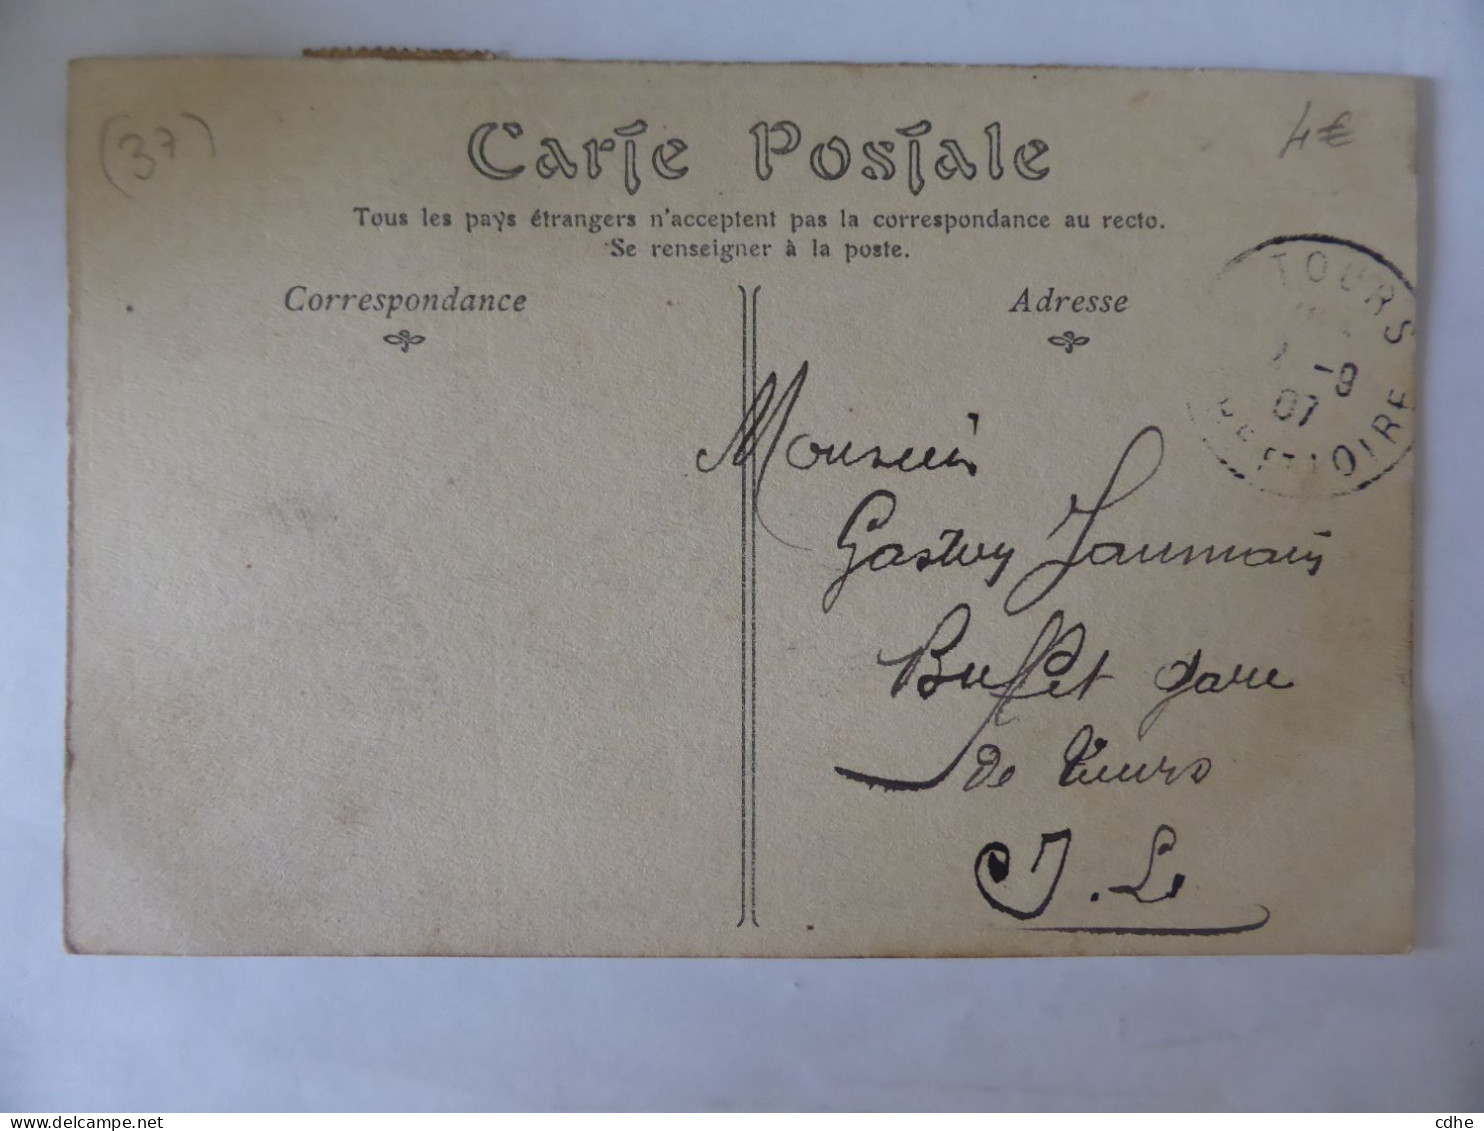 (37)
4€
Carte Postale
Tous les pays étrangers n'acceptent pas la correspondance au recto.
Se renseigner à la poste.
Correspondance
Adresse
TOURS
-8
07
ET LOIRE
Monsieur
Gaston Jaumain
Buffet gare
de Tours
I. L.
cdhe